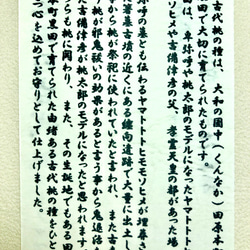 古代桃の種は、大和の国中(くんなか)田原本
田で大切に育てられたものです。
は、卑弥呼や桃太郎のモデルになったヤマト
ソヒメや吉備津彦の父、孝霊天皇の都があった場
呼の墓とも伝わるヤマトトトヒモモソヒメが埋葬
箸墓古墳の近くにある纏向遺跡で大量に出土し
から桃が祭祀に使われていたと言われ、また
桃が邪鬼祓いの効果があると言う事から鬼退治
吉備津彦が桃太郎のモデルになったと思われます。
らも桃に関わり、また、その生誕地でもある田
本町黒田で育てられた由緒ある古代桃の種をひと
二心を込めてお守りとして仕上げました。